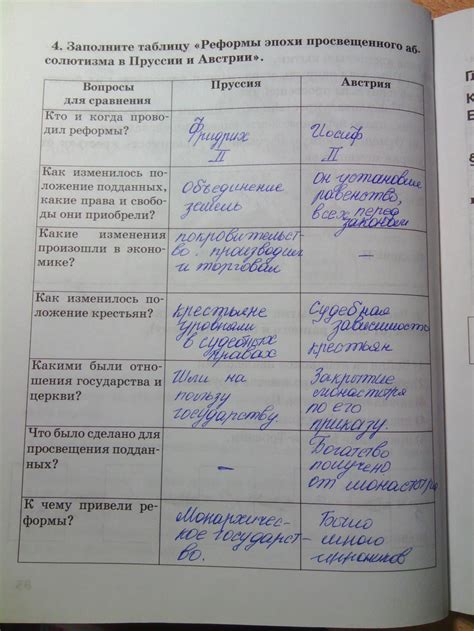 4. Заполните таблицу «Реформы эпохи просвещенного аб-
солютизма в Пруссии и Австрии».
Вопросы
для сравнения
Пруссия
Австрия
Кто и когда прово-
дил реформы?
Фридрих
II
Иосиф
II
Как изменилось по-
ложение подданных,
какие права и свобо-
ды они приобрели?
Объединение
земель
он установил
равенство,
всех перед
законом
Какие изменения
произошли в эконо-
мике?
покровительст-
во. производил
и торговал
–
Как изменилось по-
ложение крестьян?
крестьяне
уровняли
в судебных
правах
Судебная
зависимость
крестьян
Какими были отно-
шения государства и
церкви?
Шли на
пользу
государству.
Закрытие
монастыря
по его
приказу.
Что было сделано для
просвещения поддан-
ных?
–
Богатство
получено
от монастыря
К чему привели ре-
формы?
Монархичес-
кое государст-
во.
Было
много